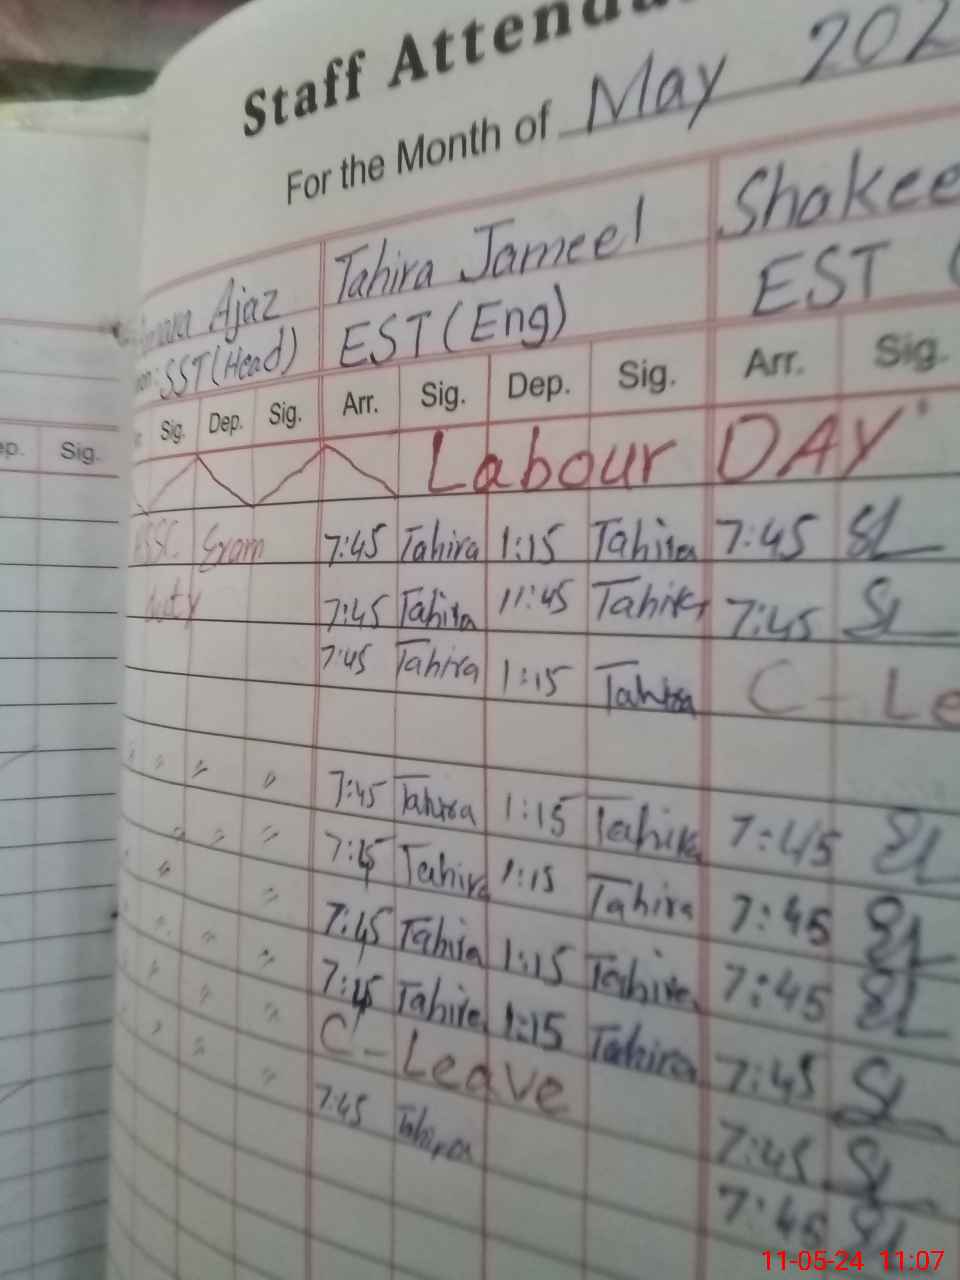 Staff Attenda
For the Month of May 202
Ajaz Tahira Jameel Shakee
SST (Head) EST (Eng) EST (
ep. Sig. Sig. Dep. Sig. Arr. Sig. Dep. Sig. Arr. Sig.
Labour DAY
Exam 7:45 Tahira 1:15 Tahira 7:45
duty 7:45 Tahira 11:45 Tahira 7:45
7:45 Tahira 1:15 Tahira C - Le
" " " 7:45 Tahira 1:15 Tahira 7:45
" " " 7:45 Tahira 1:15 Tahira 7:45
" " 7:45 Tahira 1:15 Tahira 7:45
" " " 7:45 Tahira 1:15 Tahira 7:45
" " " C - Leave 7:45
" " " 7:45 Tahira 7:45
11-05-24 11:07